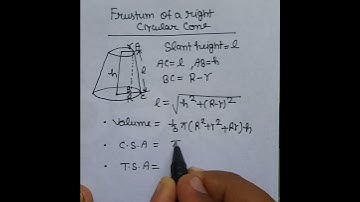 Frustum of a right
Circular Cone
Slant height = l
AC = l , AB = h
BC = R - r
l = √h² + (R-r)²
• Volume = 1/3 π (R² + r² + Rr) · h
• C.S.A =
• T.S.A =
r A
h l
R C